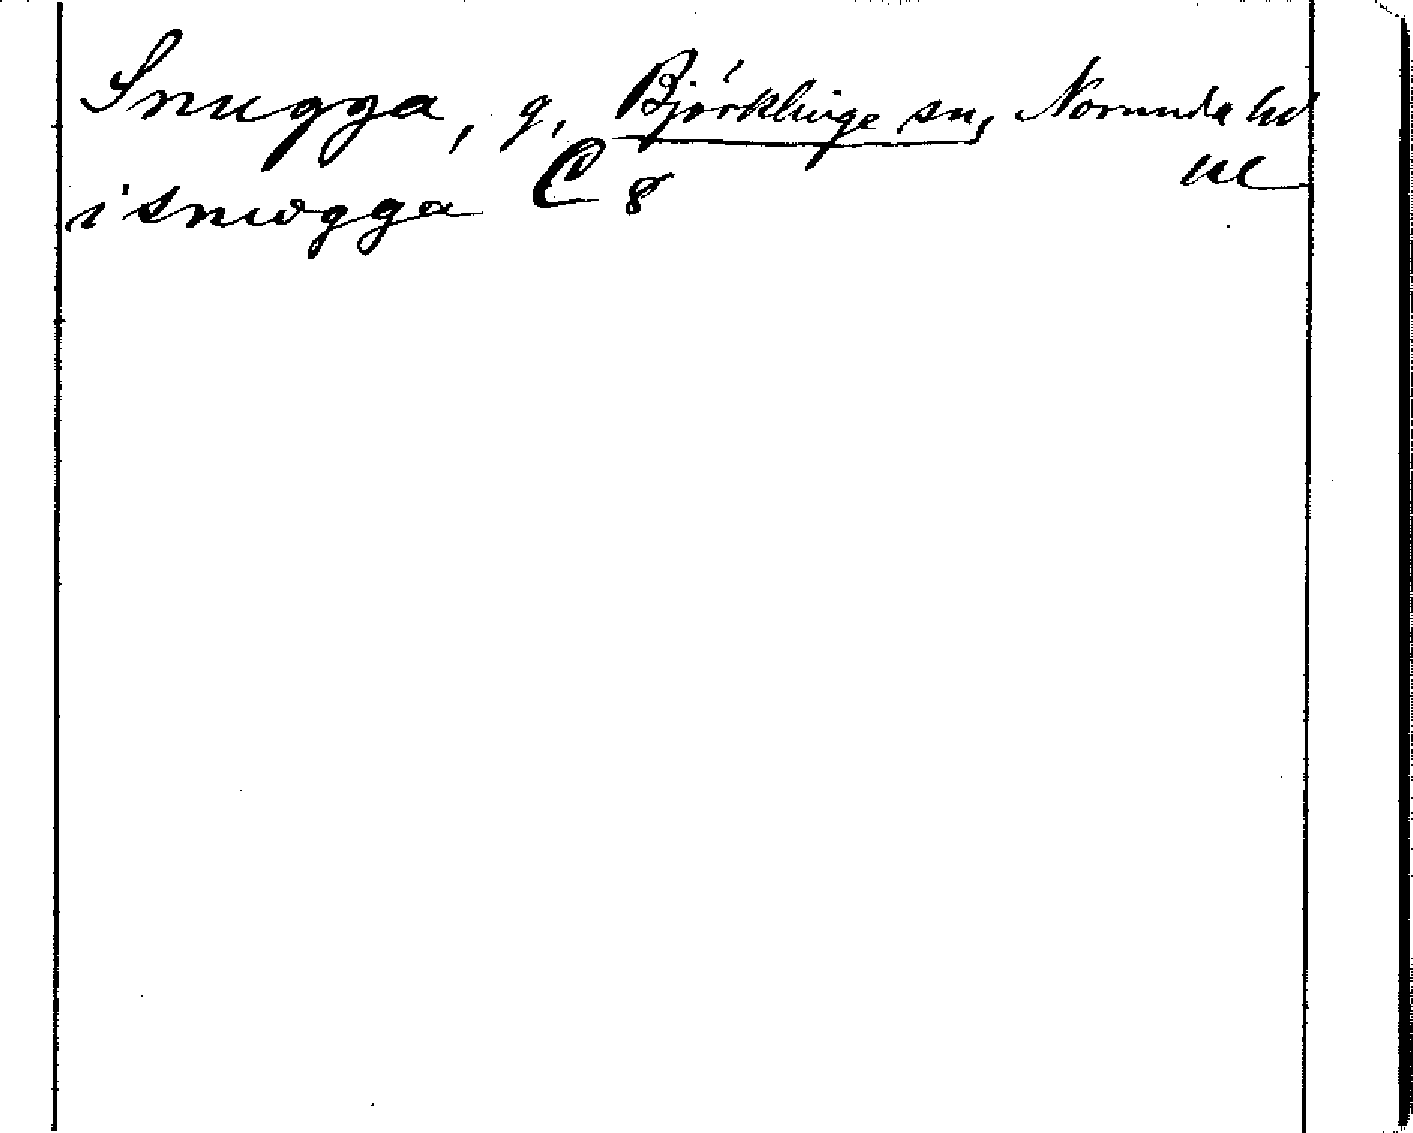 Snugga, g, Björklinge sn, Norunda hd
Ul
i snwgga C 8